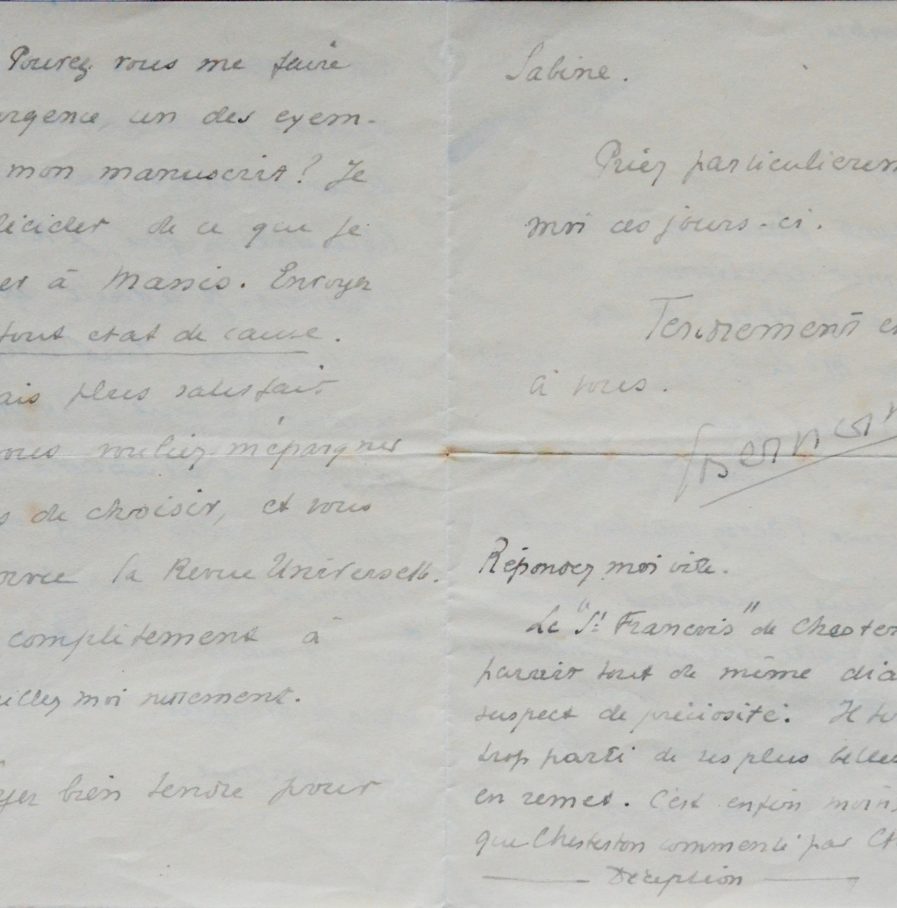 Pouvez vous me faire
urgence, un des exem-
mon manuscrit ? Je
décider de ce que je
er à Massis. Envoyer
tout etat de cause.
ais plus satisfait
vous vouliez m'épargner
s de choisir, et vous
la Revue Universelle.
complètement à
eillez moi nettement.
yez bien tendre pour
Sabine.
Priez particulierem
moi ces jours-ci.
Tendrement e
à vous.
Réponsez moi vite.
Le "St Francois" de Chester
parait tout de même dia
suspect de préciosité. Il
trop parti de ses plus belles
en remet. C'est enfin moins
que Chesterton commenté par Ch
Déception